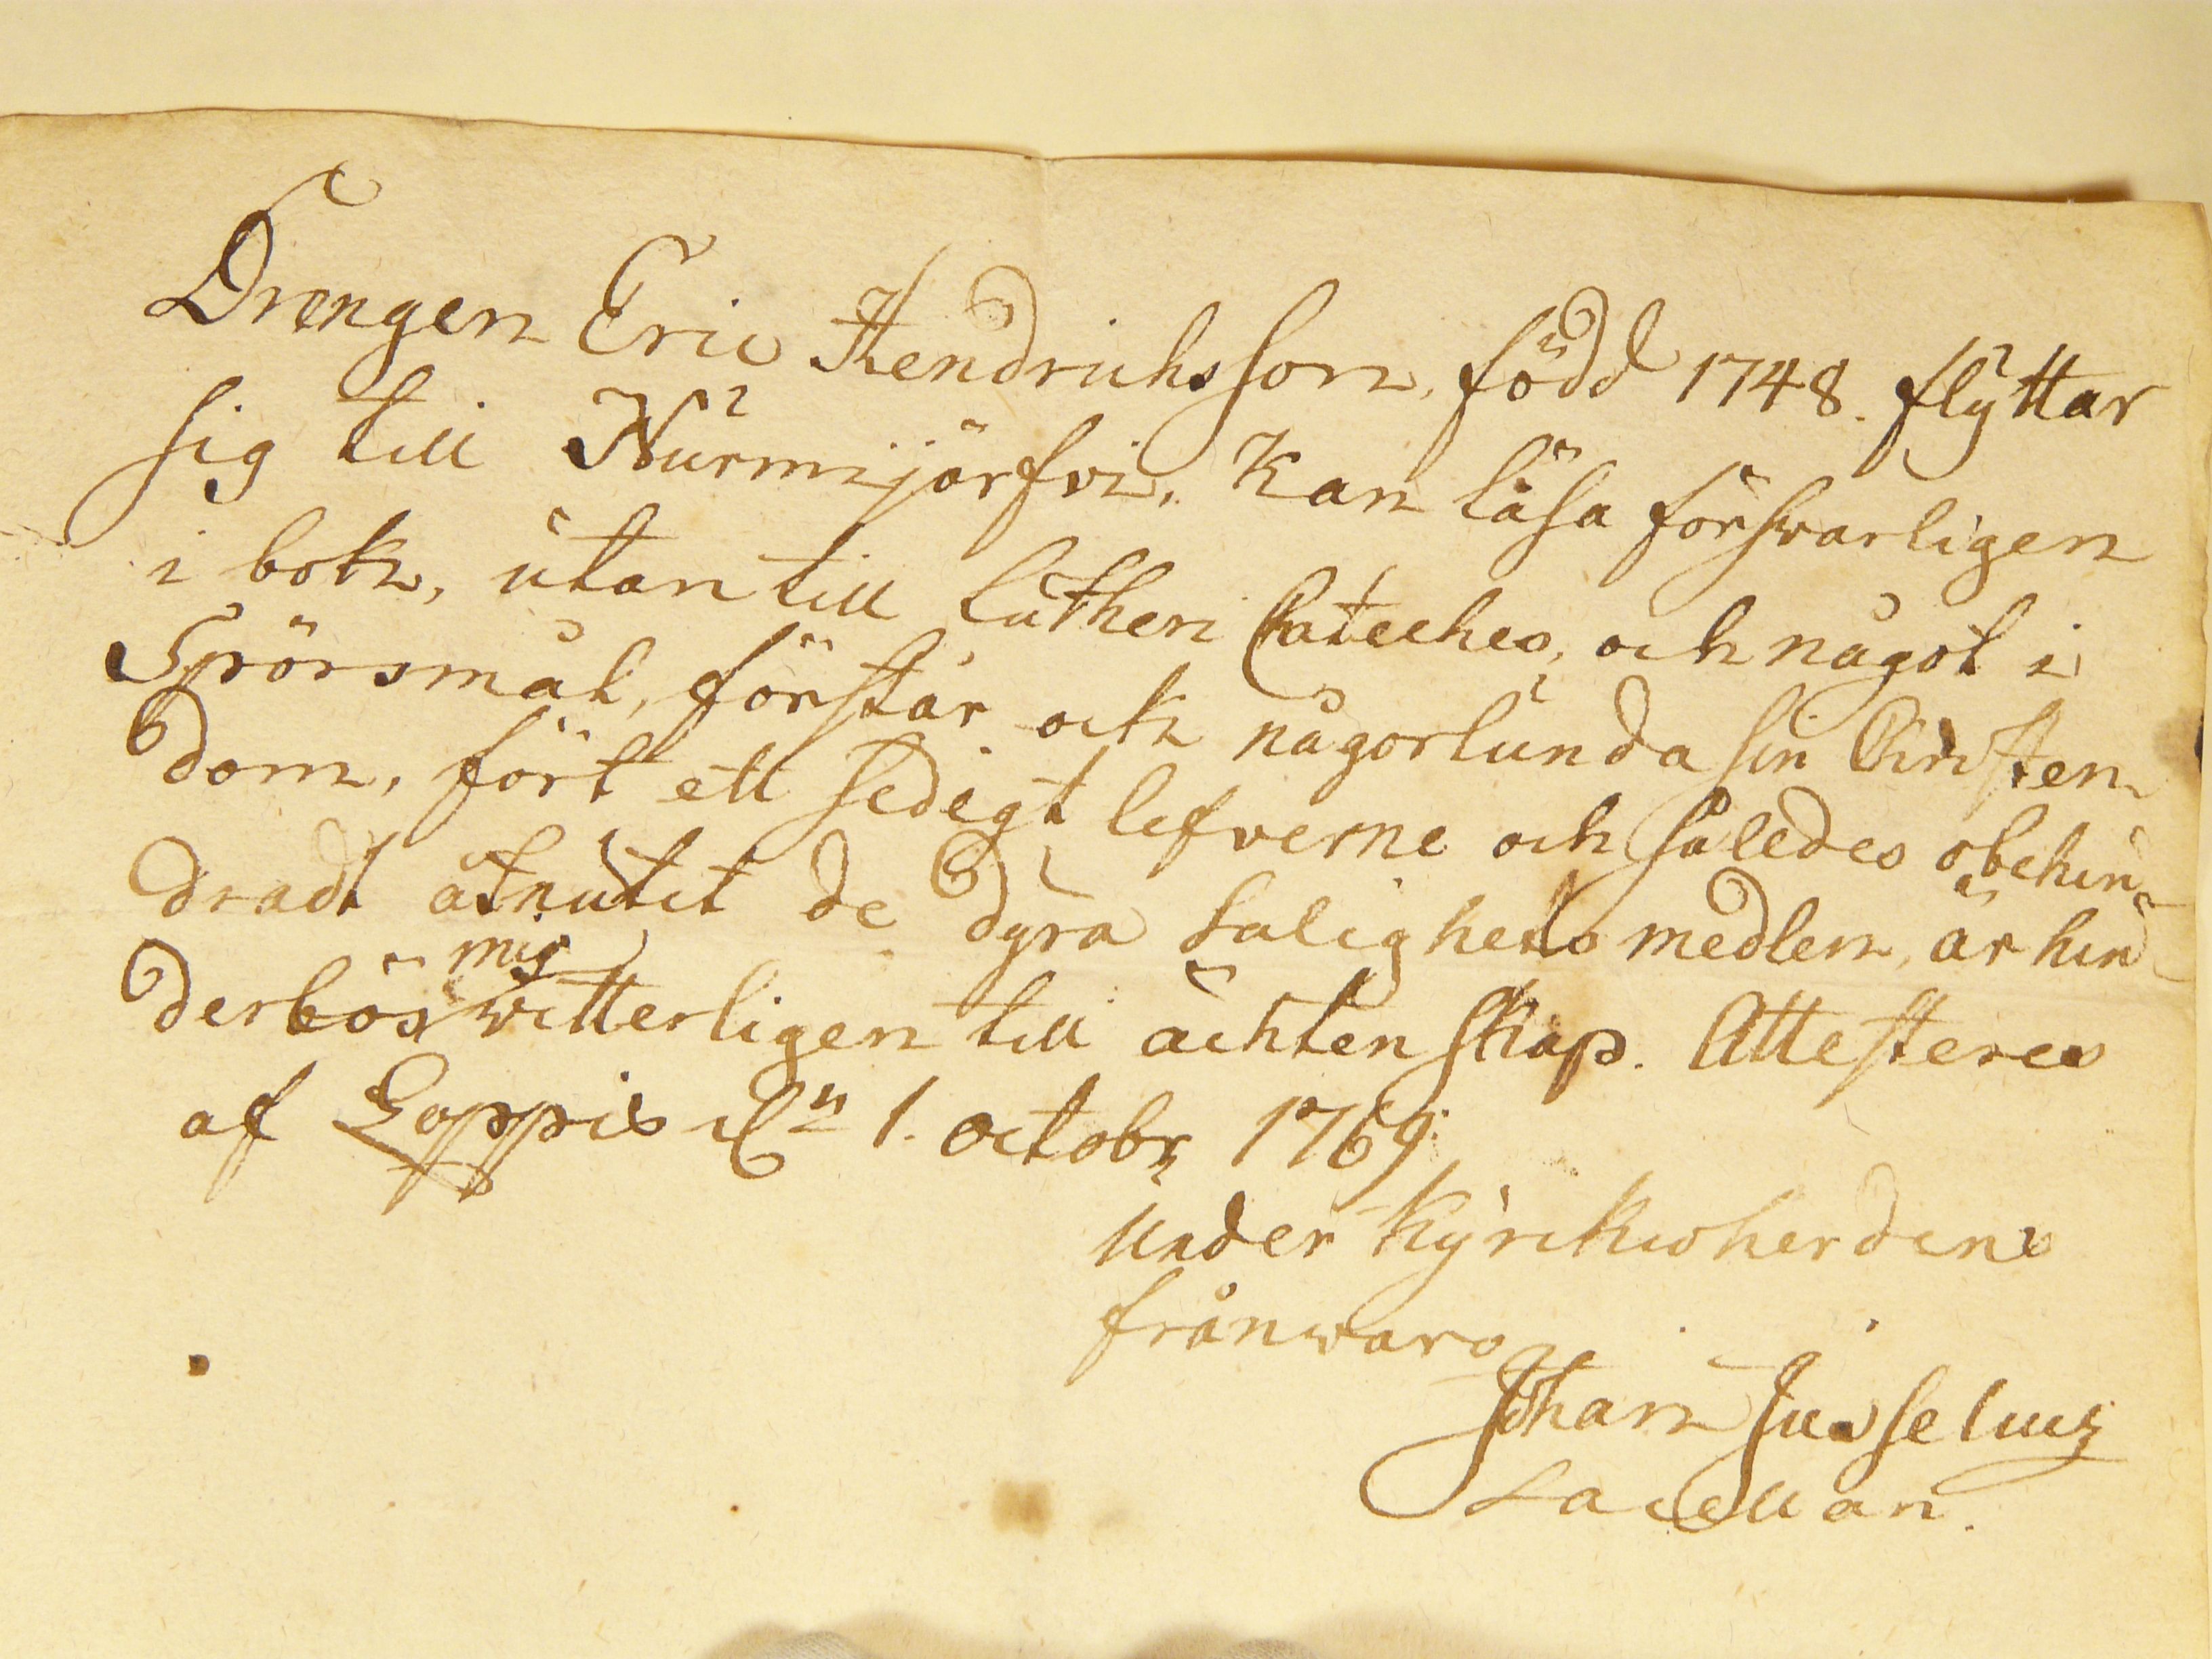 Drengen Eric Hendrichsson, född 1748. flyttar
sig till Nurmijärfvi. Kan läsa försvarligen
i bok, utan till Lutheri Cateches, och något i
Spörsmål, förstår och någorlunda sin Christen-
dom, fört ett sedigt lefverne och således obehin-
dradt åtnutit de dyra salighets medlen, är hin-
derlös mig witterligen till ächtenskap. Attesteres
af Loppis dn 1. octobr 1769.
Under Kyrckioherdens
frånwaro
Johan Jusselius
Sacellan.